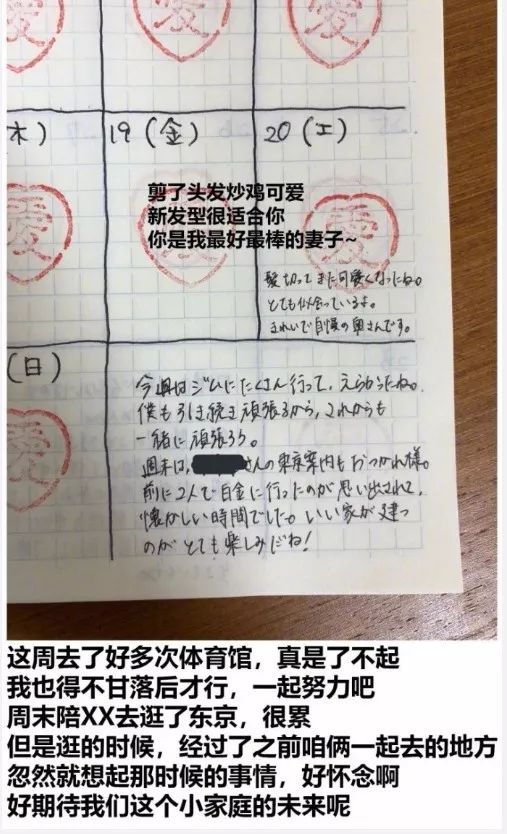 愛
愛
木)
19(金)
20(土)
愛
愛
愛
剪了头发炒鸡可爱
新发型很适合你
你是我最好最棒的妻子~
髪切ってまた可愛くなったね。
とても似合っているよ。
きれいで自慢の奥さんです。
(日)
愛
今週はジムにたくさん行って、えらかったね。
僕も引き続き頑張るから、これからも
一緒に頑張ろう。
週末は、さんの東京案内もおつかれ様。
前に2人で白金に行ったのが思い出されて、
懐かしい時間でした。いい家が建つ
のがとても楽しみだね!
这周去了好多次体育馆，真是了不起
我也得不甘落后才行，一起努力吧
周末陪XX去逛了东京，很累
但是逛的时候，经过了之前咱俩一起去的地方
忽然就想起那时候的事情，好怀念啊
好期待我们这个小家庭的未来呢